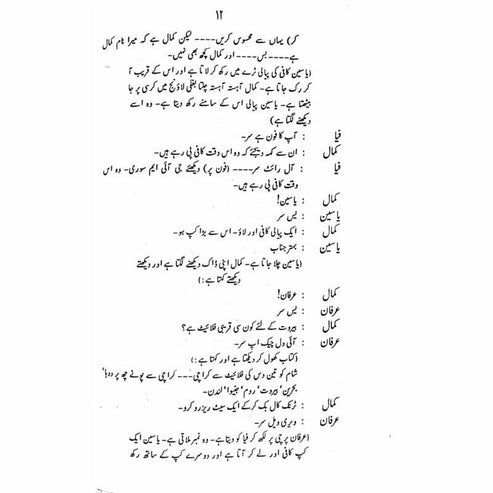 ۱۲
کر) یہاں سے محسوس کریں۔۔۔۔ لیکن کمال ہے کہ میرا نام کمال
ہے۔۔۔۔بس۔۔۔۔ اور کمال کچھ بھی نہیں۔
(یاسین کافی کی پیالی ٹرے میں رکھ کر لاتا ہے اور اس کے قریب آ
کر رک جاتا ہے۔ کمال آہستہ آہستہ چلتا بغلی لاؤنج میں کرسی پر جا
بیٹھتا ہے۔ یاسین پیالی اس کے سامنے رکھ دیتا ہے۔ وہ اسے
دیکھنے لگتا ہے)
فیا : آپ کا فون ہے سر۔
کمال : ان سے کہہ دیجئے کہ وہ اس وقت کافی پی رہے ہیں۔
فیا : آل رائٹ سر۔۔۔۔ (فون پر) دیکھئے جی آئی ایم سوری۔ وہ اس
وقت کافی پی رہے ہیں۔
کمال : یاسین!
یاسین : یس سر
کمال : ایک پیالی کافی اور لاؤ۔ اس سے بڑا کپ ہو۔
یاسین : بہتر جناب
(یاسین چلا جاتا ہے۔ کمال اپنی ڈاک دیکھنے لگتا ہے اور دیکھتے
دیکھتے کہتا ہے:)
کمال : عرفان!
عرفان : یس سر
کمال : بیروت کے لئے کون سی قریبی فلائیٹ ہے؟
عرفان : آئی ول چیک اپ سر۔
(کتاب کھول کر دیکھتا ہے اور کہتا ہے:)
شام کو تین دس کی فلائیٹ سے کراچی۔۔۔ کراچی سے پونے چھ پر دوہا‘
بحرین‘ بیروت‘ روم‘ جنیوا‘ لندن۔
کمال : ٹرنک کال بک کر کے ایک سیٹ ریزرو کرو۔
عرفان : ویری ویل سر۔
(عرفان پرچی پر لکھ کر فیا کو دیتا ہے۔ وہ نمبر ملاتی ہے۔ یاسین ایک
کپ کافی اور لے کر آتا ہے اور دوسرے کپ کے ساتھ رکھ